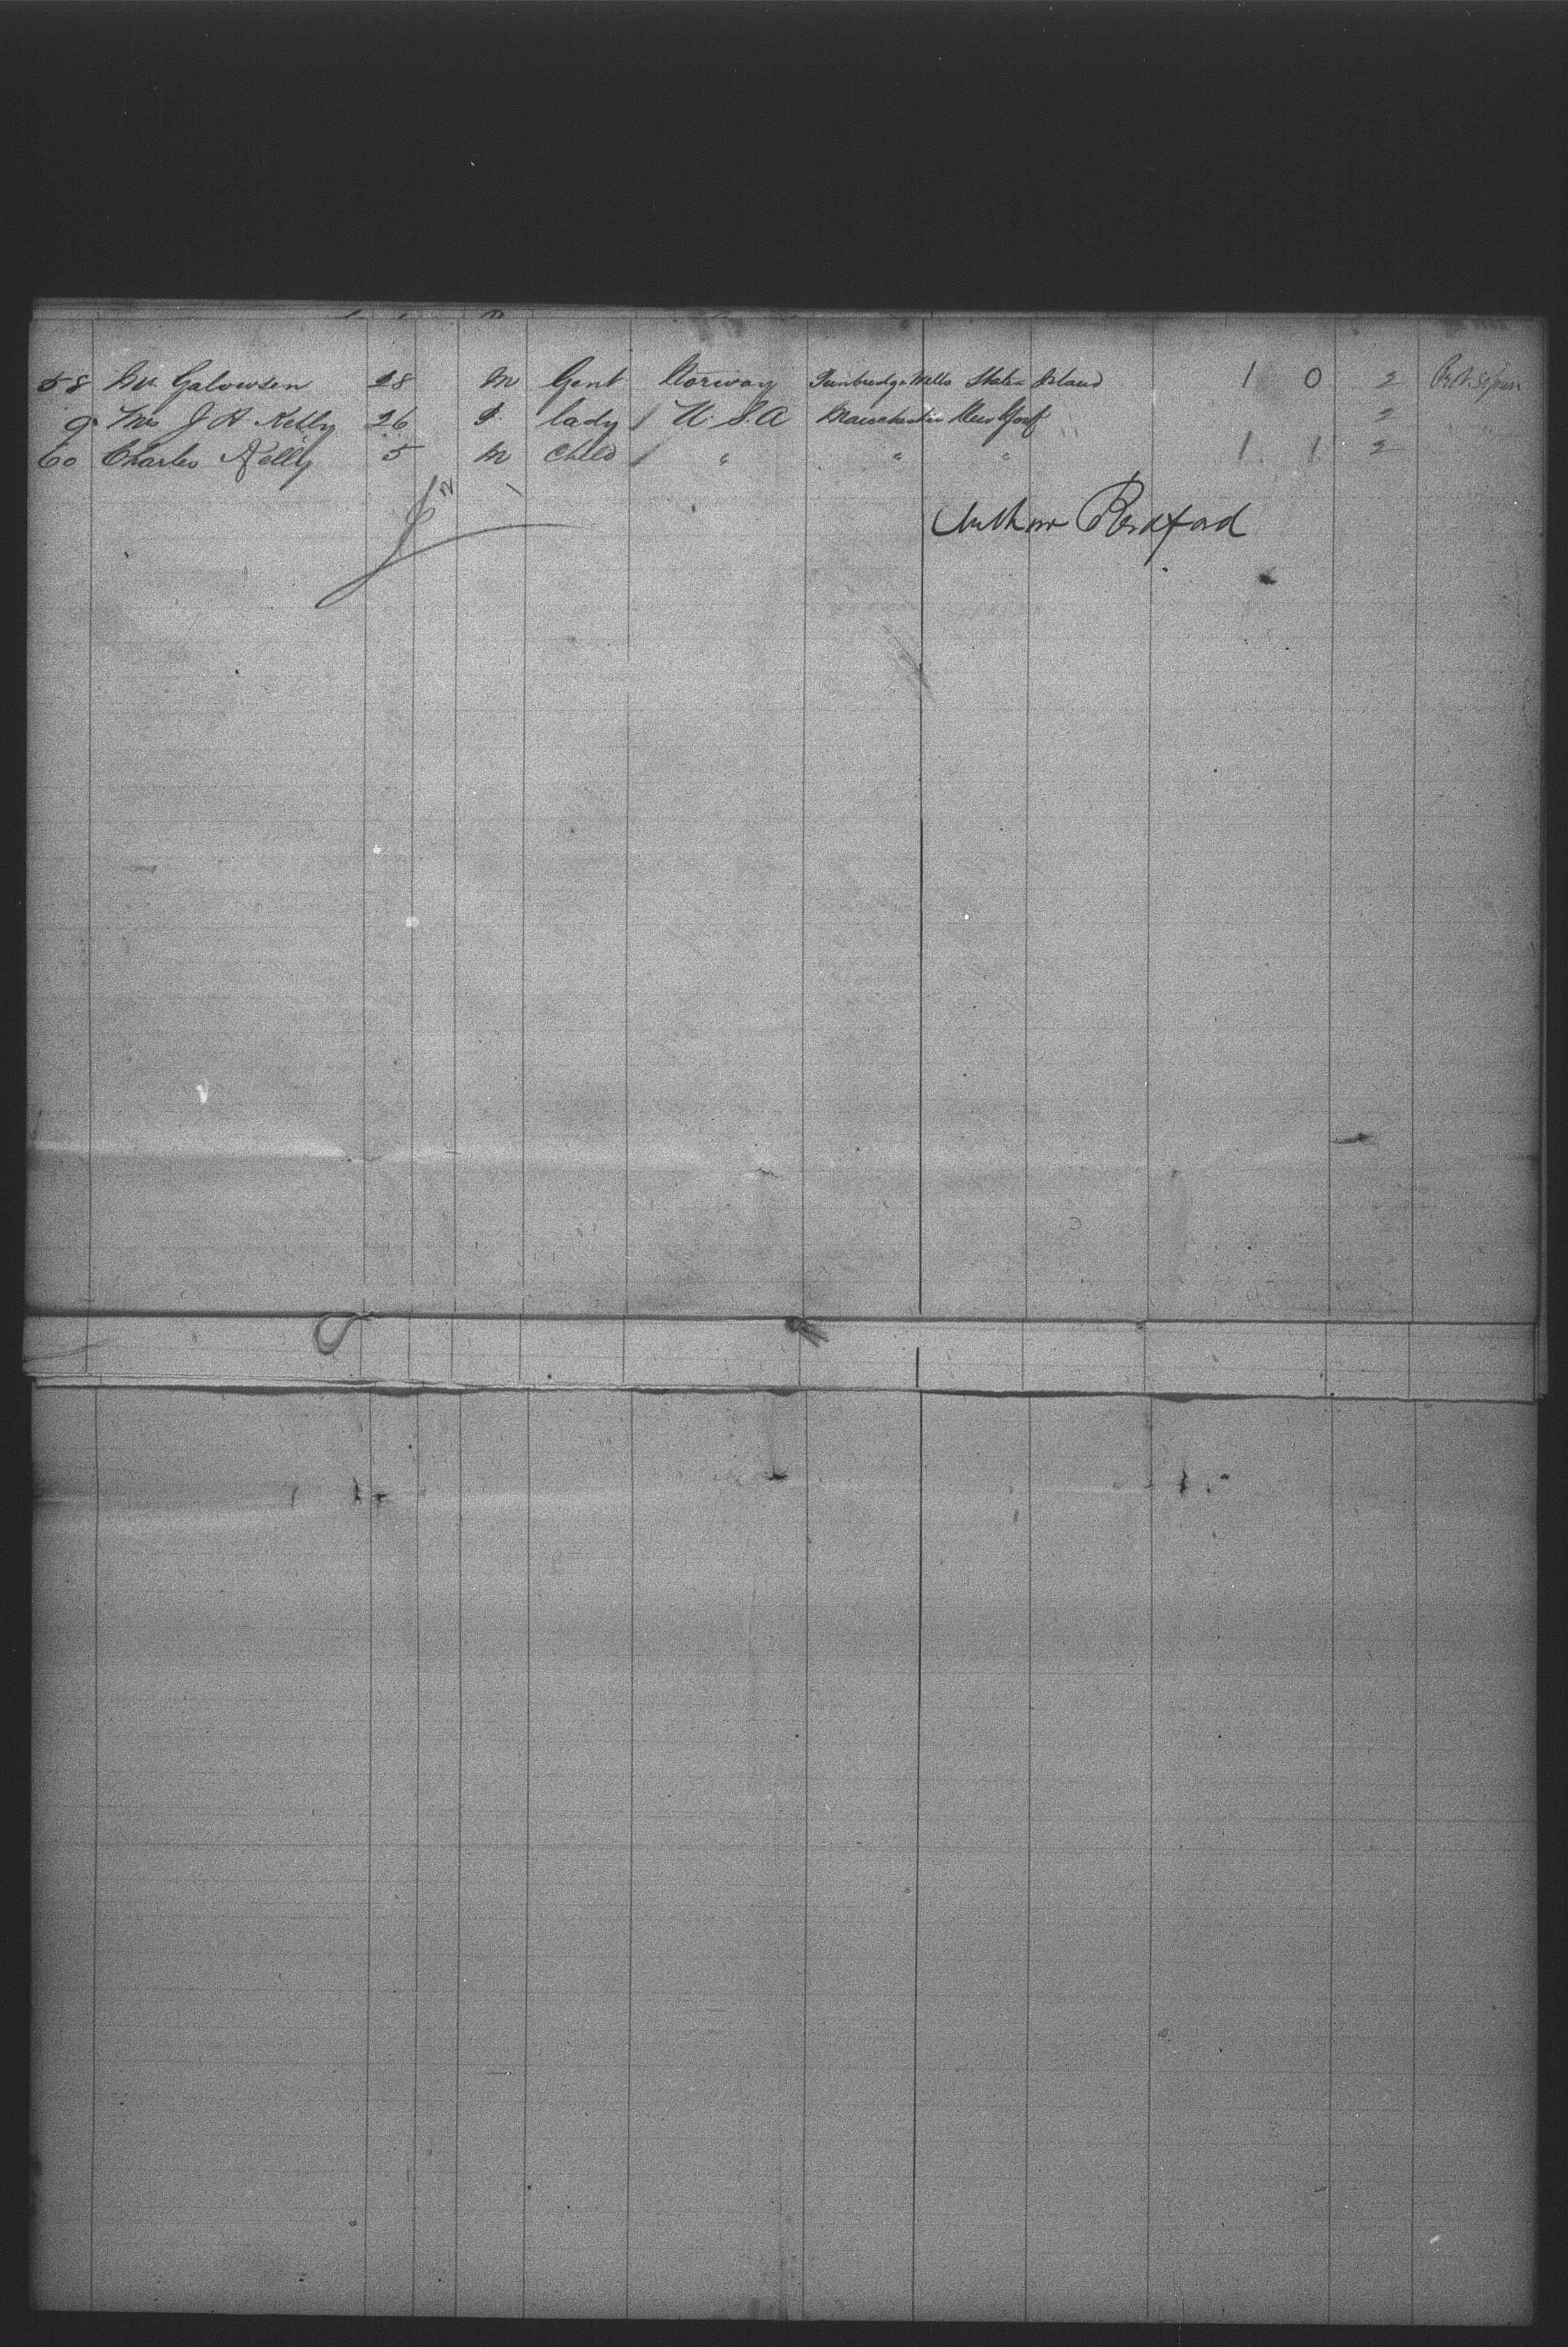 58 Mr Galowsen 28 M Gent Norway Tunbridge Wells Staten Island 1 0 2
9 Mrs J A. Kelly 26 F. lady / U.S.A Manchester New York 2
60 Charles Kelly 5 M Child / " " " 1 1 2
Arthur